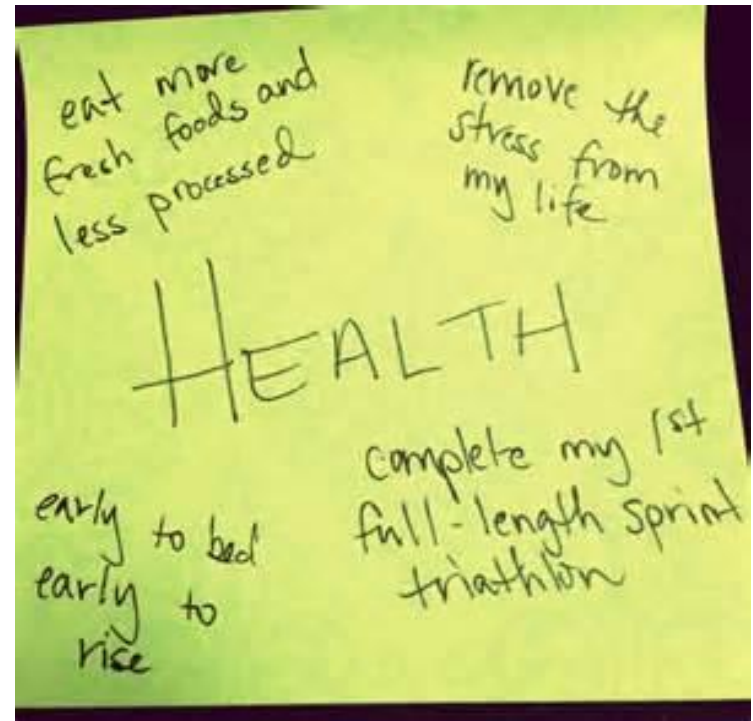 eat more
fresh foods and
less processed
remove the
stress from
my life
HEALTH
early to bed
early to
rise
complete my 1st
full-length sprint
triathlon